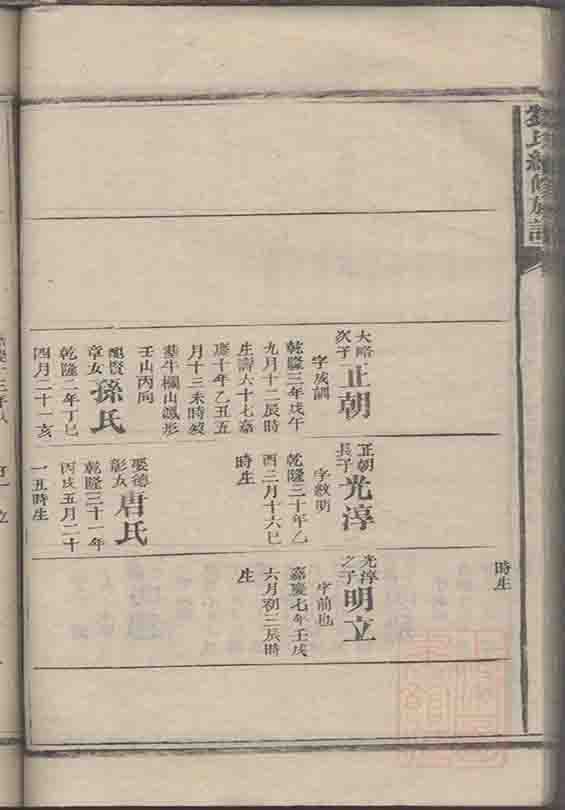 氏續修族譜
大略
次子
正朝
字成調
乾隆三年戊午
九月十二辰時
生壽六十七嘉
慶十年乙丑五
月十三未時歿
葬牛欄山颿形
壬山丙向
配賢
章女
孫氏
乾隆二年丁巳
四月二十一亥
正朝
長子
光淳
字紋明
乾隆三十年乙
酉三月十六巳
時生
娶德
彰女
唐氏
乾隆三十一年
丙戌五月二十
一丑時生
時生
光淳
之子
明立
字前也
嘉慶七年壬戌
六月初三辰時
生